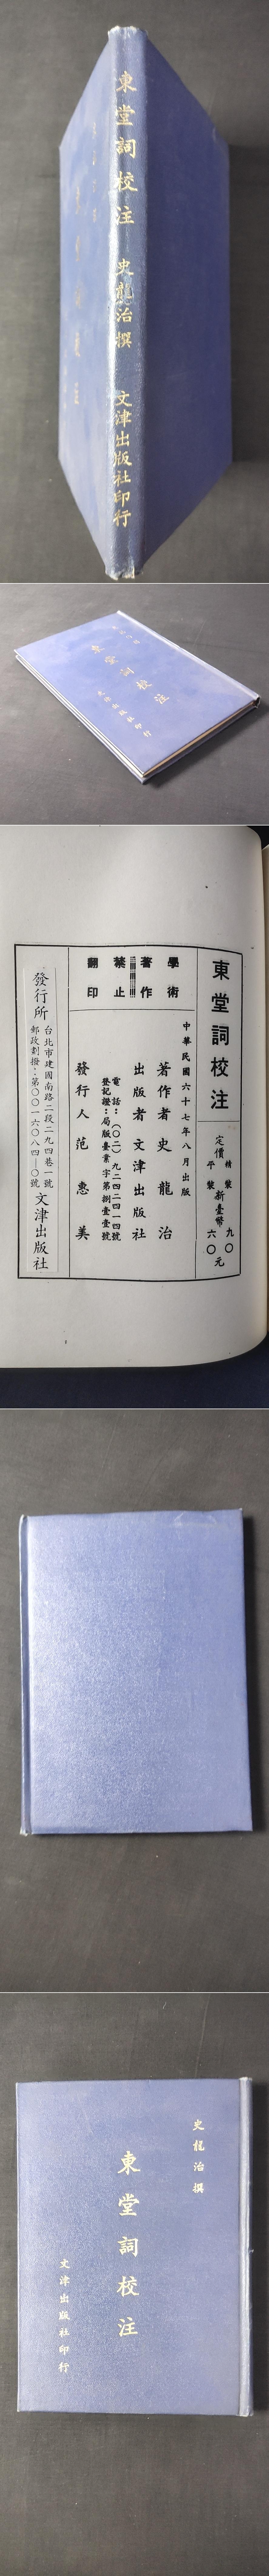 東堂詞校注 史龍治撰 文津出版社印行
東堂詞校注
文津出版社印行
東堂詞校注
定價
精裝 九〇
平裝 新臺幣 六〇 元
中華民國六十七年八月出版
學術著作
禁止翻印
著作者 史龍治
出版者 文津出版社
電話：(〇二)九二四二四一四號
登記證：局版臺業字第捌壹壹號
發行人 范惠美
發行所 文津出版社
台北市建國南路二段二九四巷一號
郵政劃撥：第〇〇一六〇八四—〇號
史龍治撰
東堂詞校注
文津出版社印行